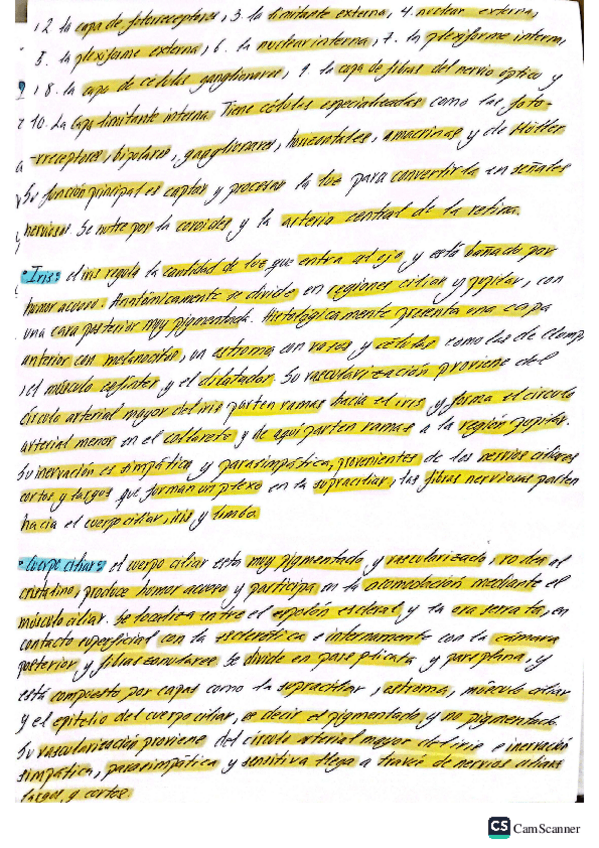 , 2 la capa de fotorreceptores, 3. la limitante externa, 4. nuclear externa,
5. la plexiforme externa, 6. la nuclear interna, 7. la plexiforme interna,
, 8. la capa de células ganglionares, 9. la capa de fibras del nervio óptico y
10. La capa limitante interna. Tiene células especializadas como las foto-
-rreceptores, bipolares, ganglionares, horizontales, amacrinas y de Müller
Su función principal es captar y procesar la luz para convertirla en señales
nerviosas. Se nutre por la coroides y la arteria central de la retina.
• Iris: el iris regula la cantidad de luz que entra al ojo, y está bañado por
humor acuoso. Anatómicamente se divide en regiones ciliar y pupilar, con
una cara posterior muy pigmentada. Histológicamente presenta una capa
anterior con melanocitos, un estroma con vasos y células como las de Clump
, el músculo esfínter y el dilatador. Su vascularización proviene del
círculo arterial mayor del iris parten ramas hacia el iris y forma el círculo
arterial menor en el collarete y de aquí parten ramas a la región pupilar.
Su inervación es simpática y parasimpática, provenientes de los nervios ciliares
cortos y largos que forman un plexo en la supraciliar, las fibras nerviosas parten
hacia el cuerpo ciliar, iris y limbo.
• Cuerpo ciliar: el cuerpo ciliar esta muy pigmentado y vascularizado, rodea al
cristalino, produce humor acuoso y participa en la acomodación mediante el
músculo ciliar. Se localiza entre el espolón escleral y la ora serrata, en
contacto superficial con la esclerótica e internamente con la cámara
posterior y fibras zonulares. Se divide en pars plicata y pars plana, y
está compuesto por capas como la supraciliar, estroma, músculo ciliar
y el epitelio del cuerpo ciliar, es decir el pigmentado y no pigmentado.
Su vascularización proviene del círculo arterial mayor del iris e inervación
simpática, parasimpática y sensitiva llega a través de nervios ciliares
largos y cortos.
CS CamScanner